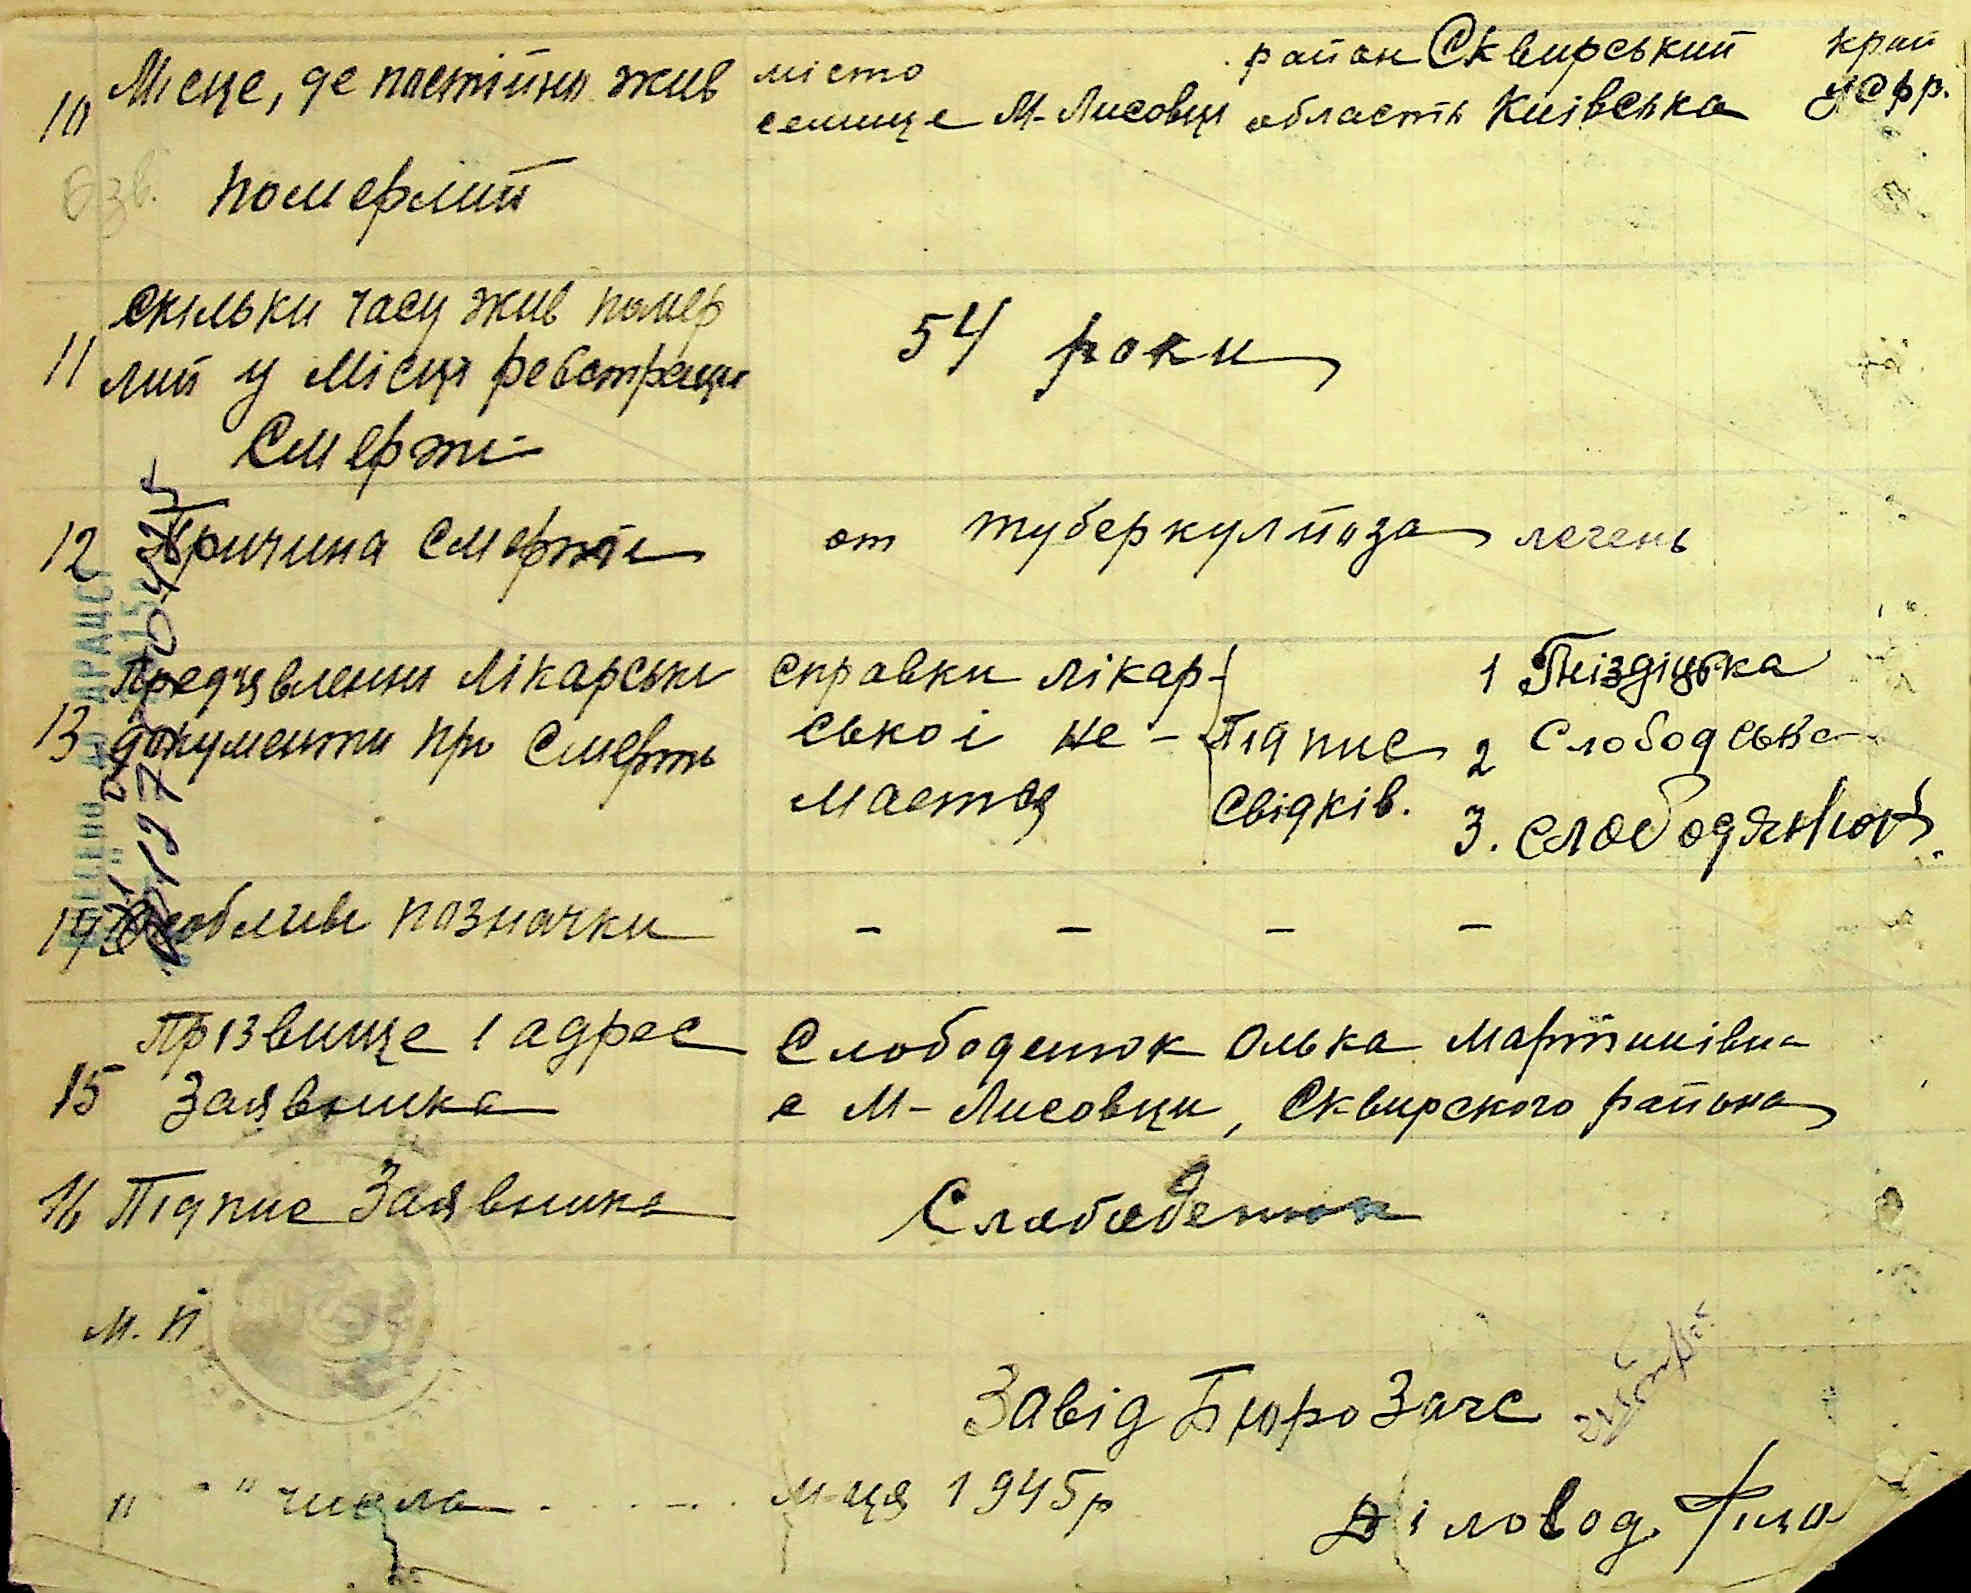 10 Місце, де постійно жив
місто район Сквирський край
селище М-Лисовці область Київська УСРР.
померлий
Скільки часу жив помер
11 лий у місці реєстрації 54 роки
Смерті
12 Причина смерти от туберкульоза лечень
Предявленни лікарські справки лікар- 1 Гніздіцька
13 документи про смерть ської не- Підпис 2 Слободська
мається свідків. 3.
14 Особливі позначки - - - -
Прізвище і адрес Слободенюк Олька Мартинівна
15 Заявника с М-Лисовци, Сквирского района
16 Підпис Заявника Слободенюк
м. п
Завід Бюро Загс
" " числа . . . . м-ця 1945р Діловод.